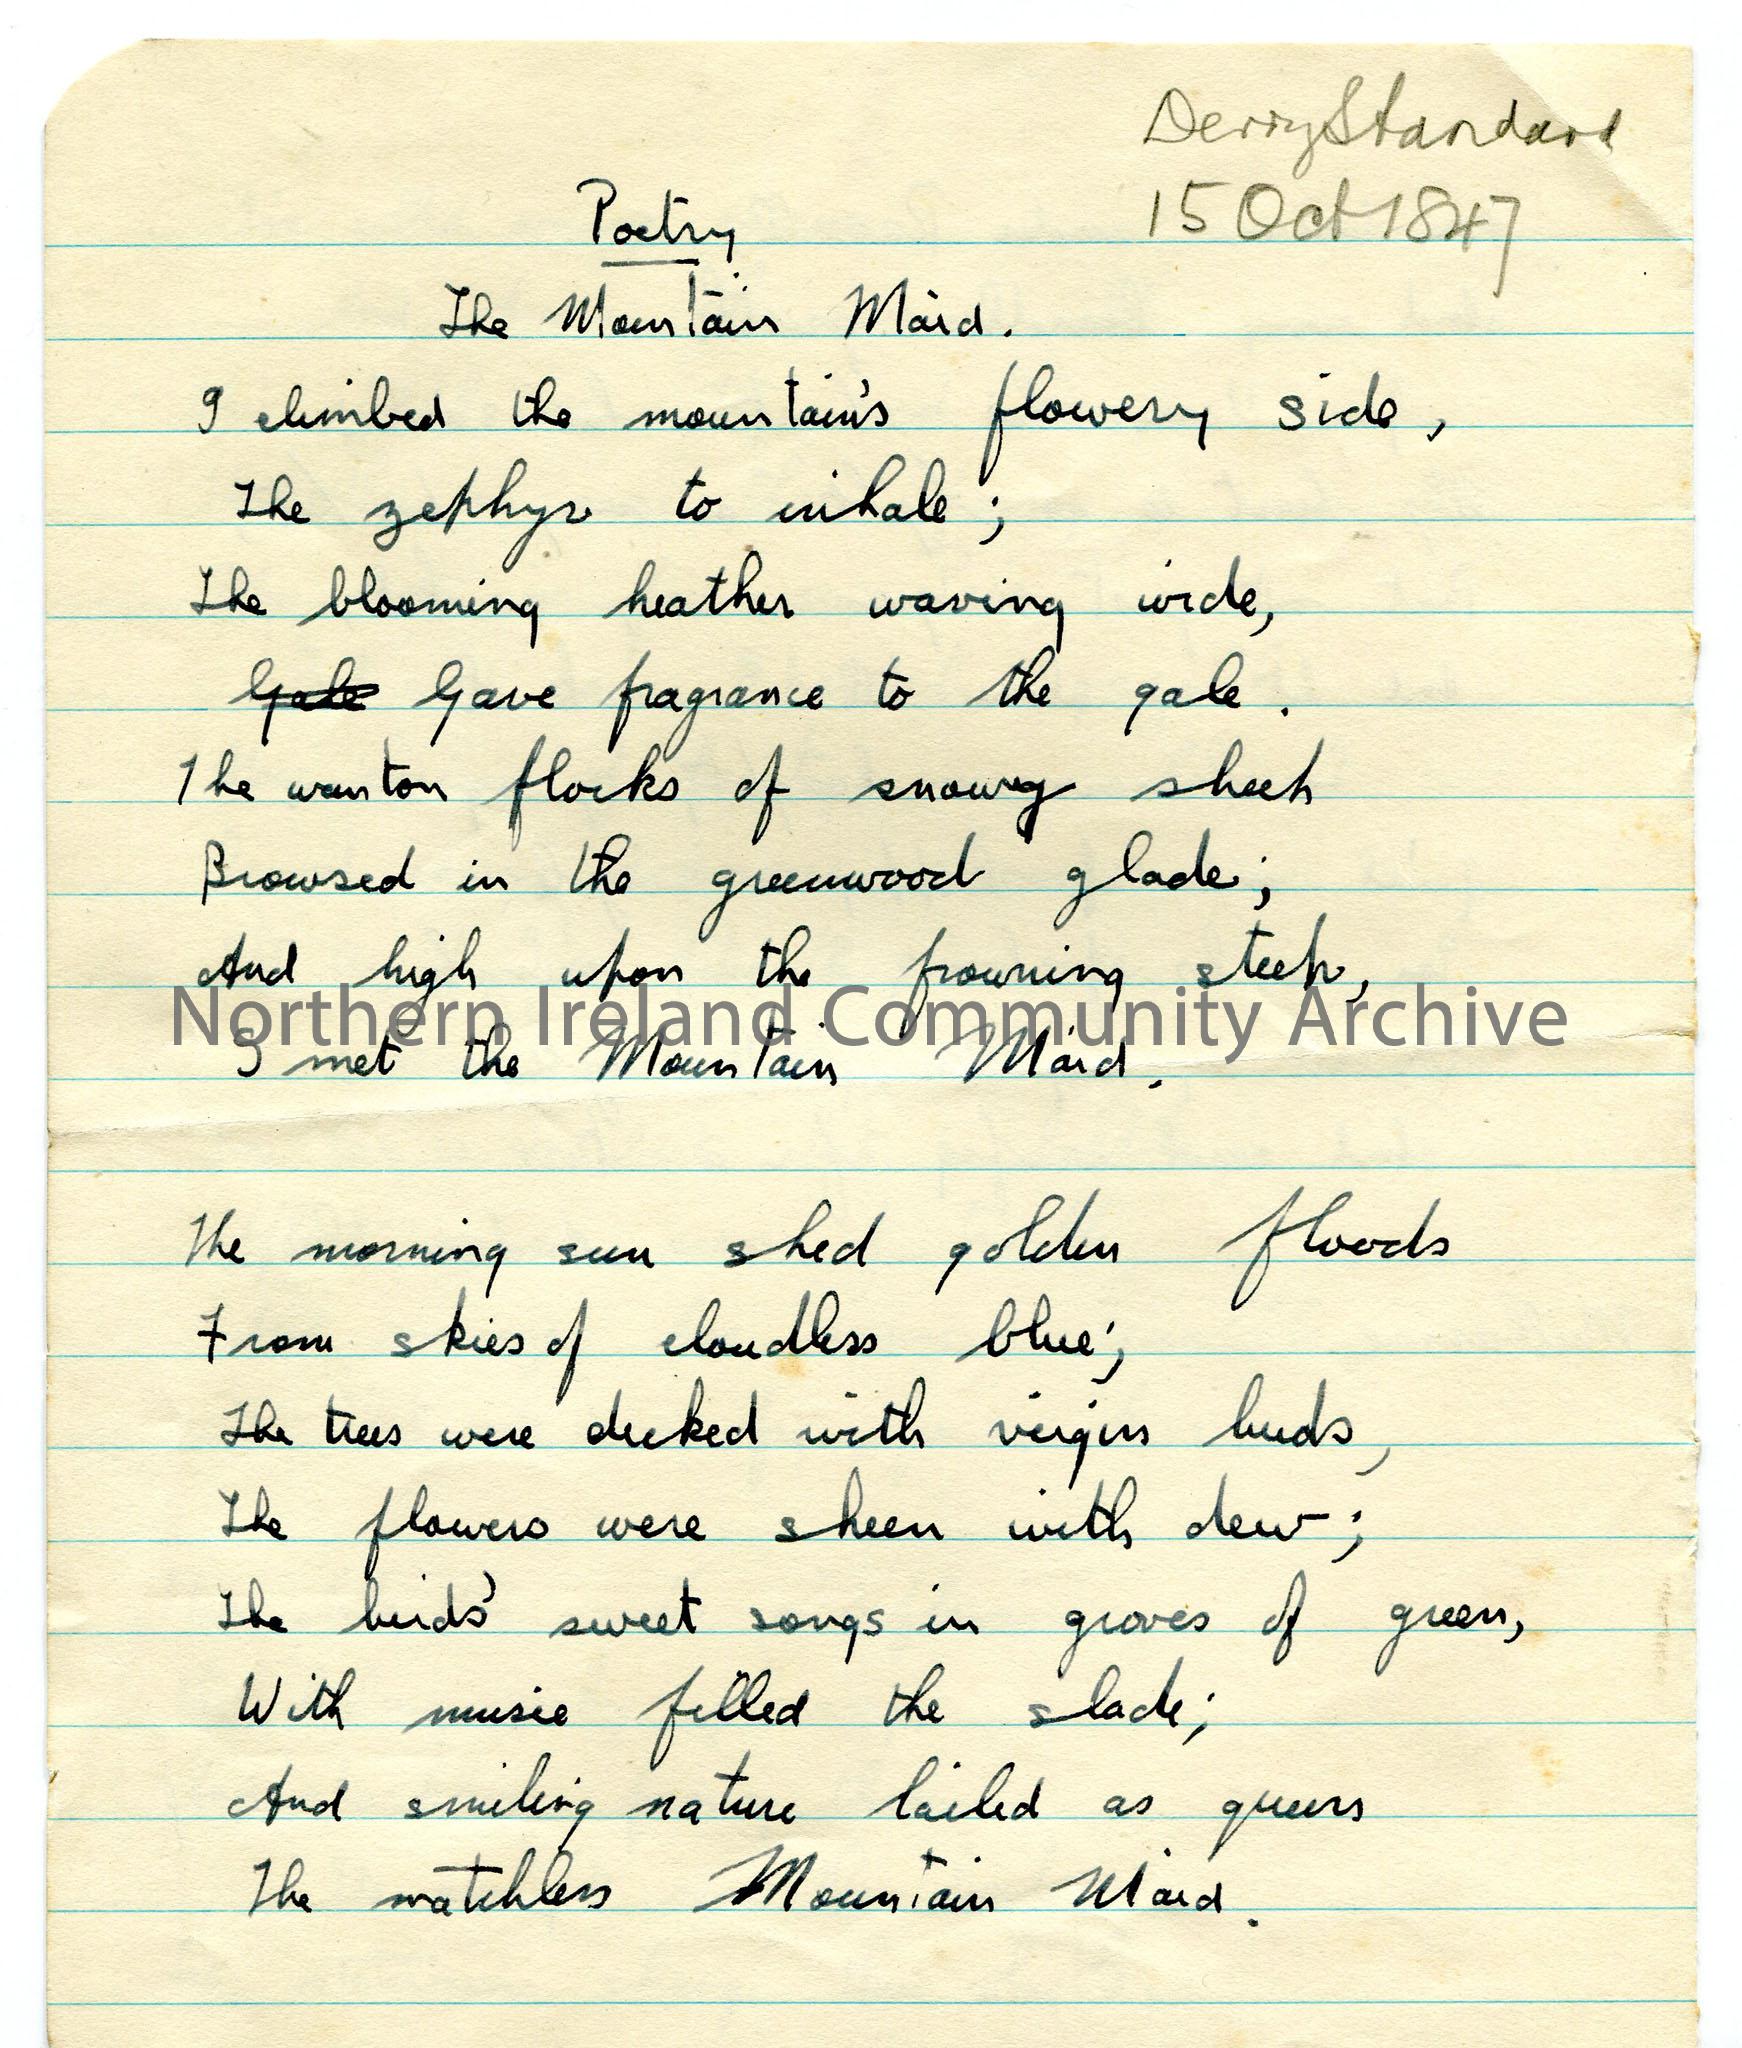 Derry Standard
15 Oct 1847
Poetry
The Mountain Maid.
I climbed the mountain's flowery side,
The zephyr to inhale;
The blooming heather waving wide,
Gale Gave fragrance to the gale.
The wanton flocks of snowy sheep
Browsed in the greenwood glade;
And high upon the frowning steep,
Northern Ireland Community Archive
I met the Mountain Maid.
The morning sun shed golden floods
From skies of cloudless blue;
The trees were decked with virgin buds,
The flowers were sheen with dew;
The birds' sweet songs in groves of green,
With music filled the slade;
And smiling nature hailed as queen
The matchless Mountain Maid.